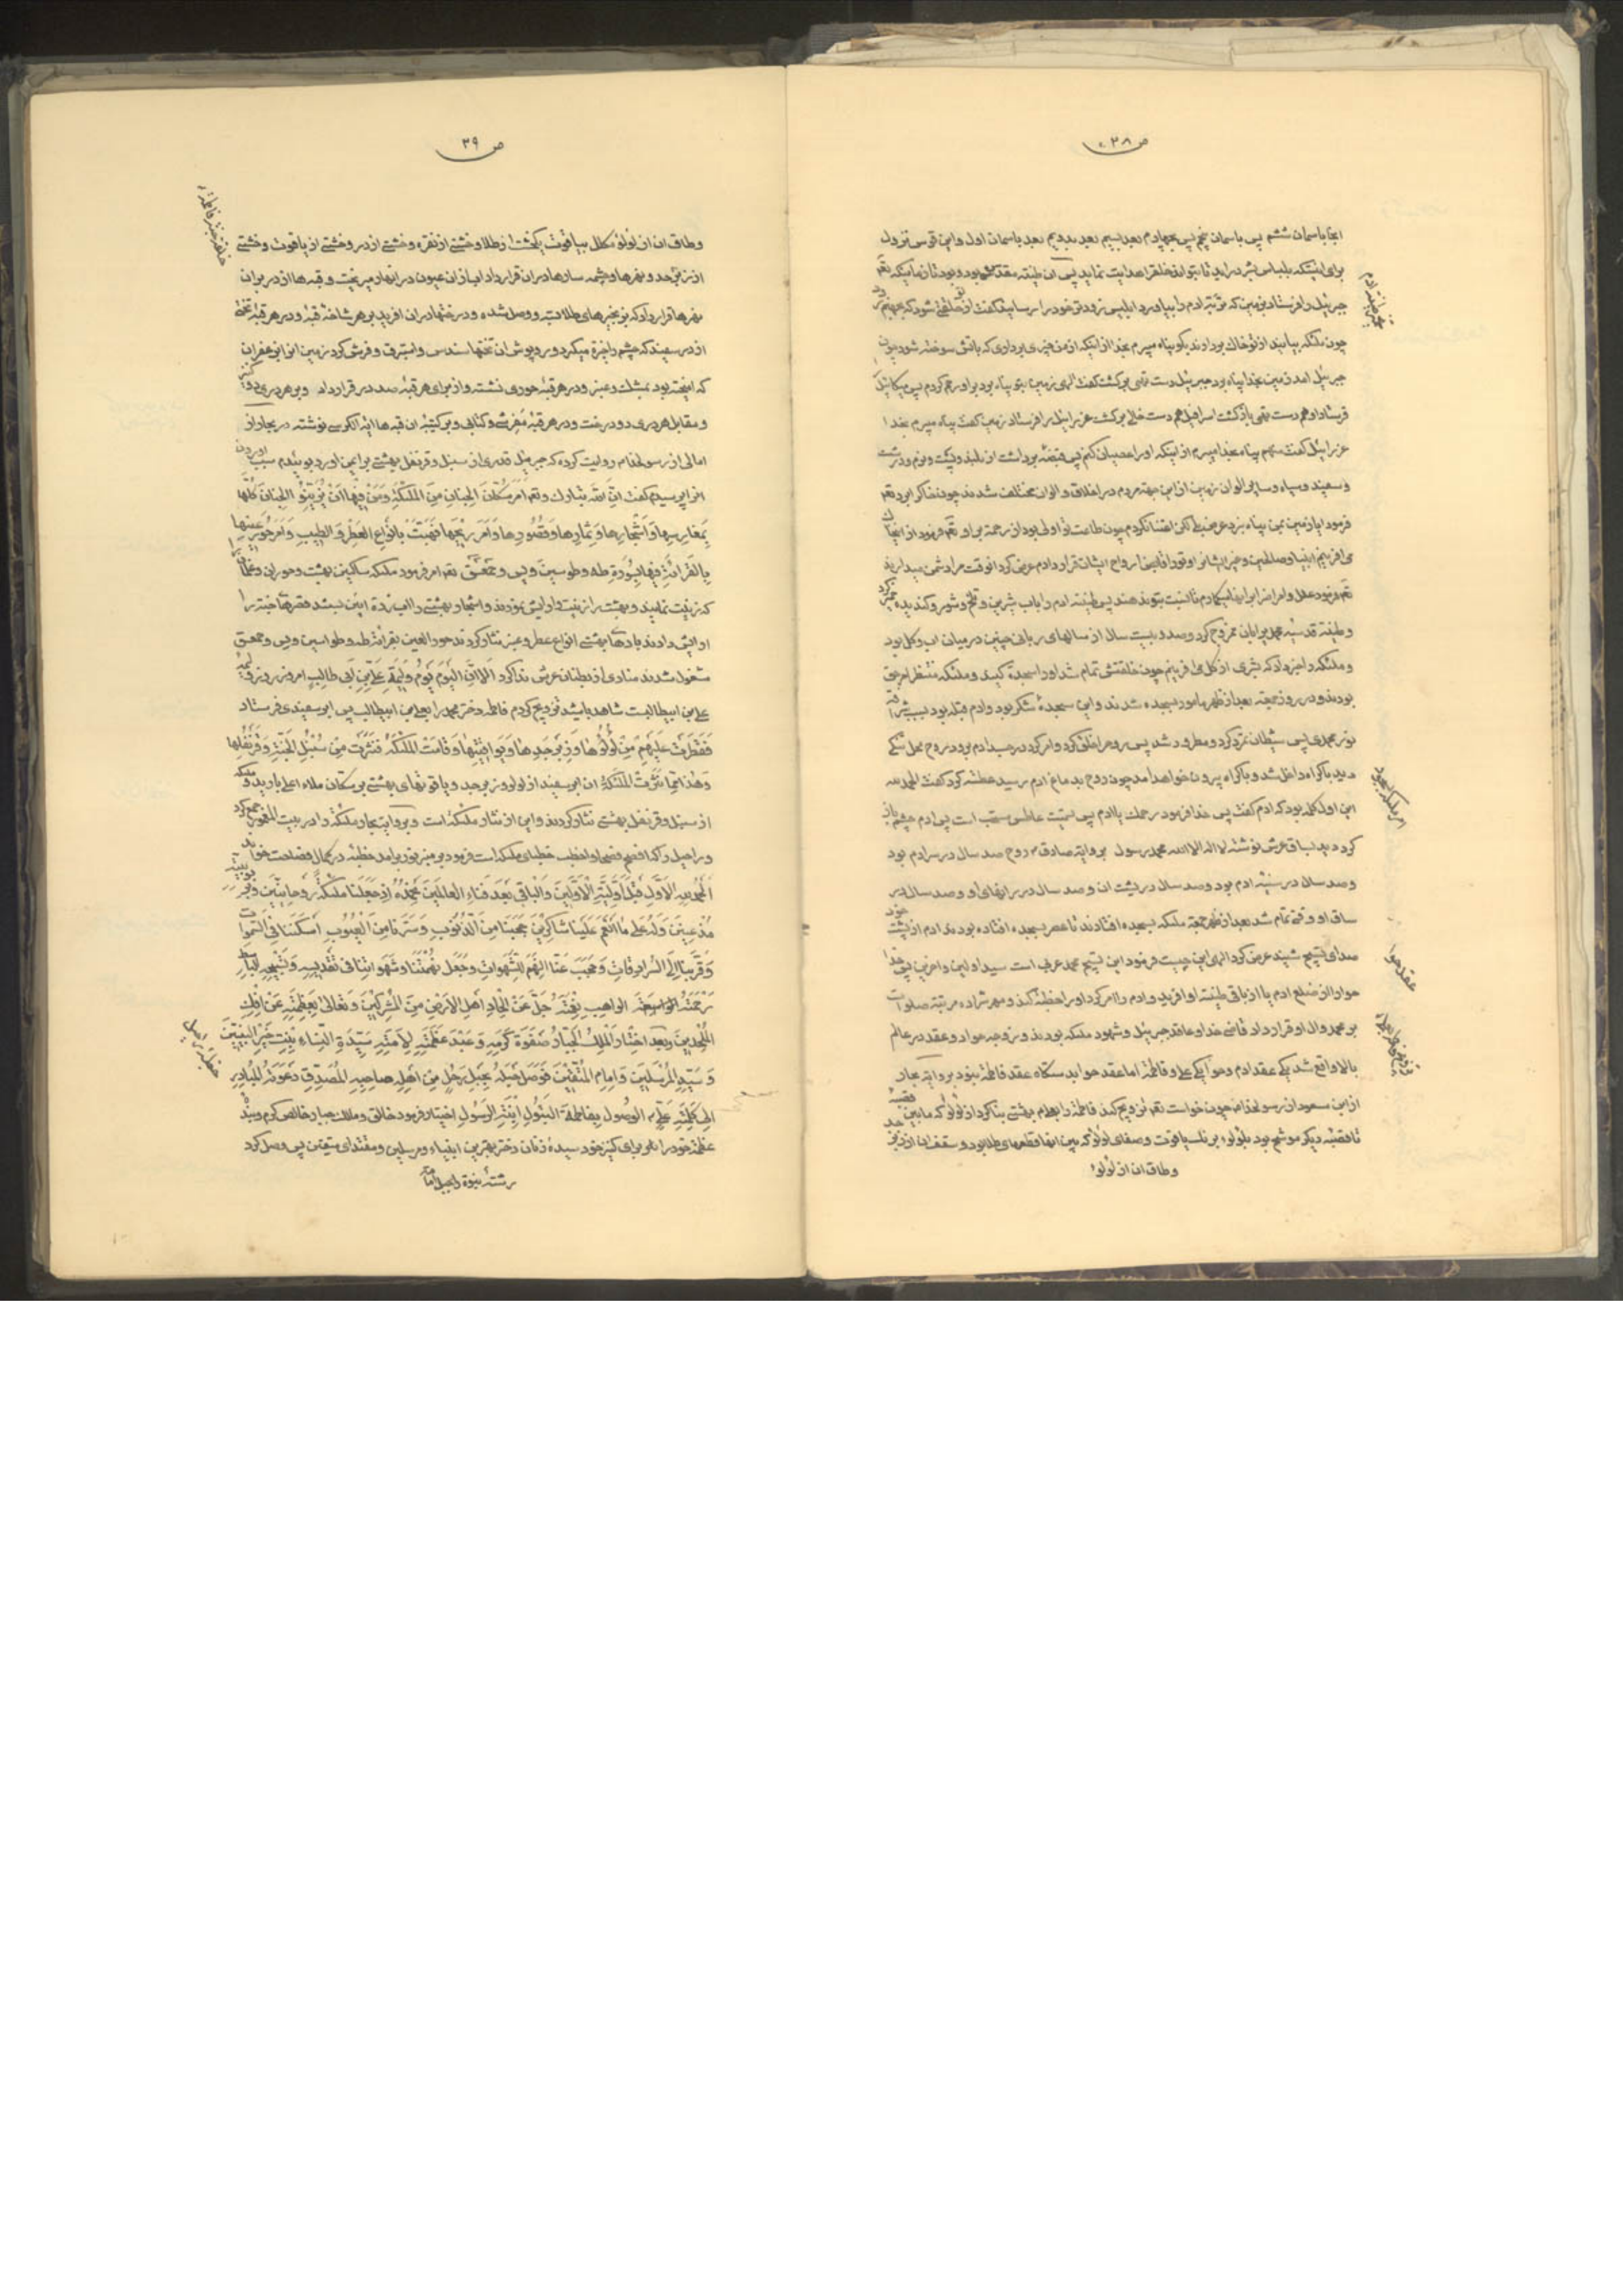 ص ۳۸
انجا باسمان ششم پس باسمان پنجم پس بچهارم بعد بسیم بعد بدویم بعد باسمان اول و این قوس نزول
برای اینکه بلباس بشر دراید تا بتواند خلقرا هدایت نماید پس ان طینت مقدسه بود و بود تا زمانیکه
جبرئیل را فرستاد بزمین که تربت ادم را بیاورد ابلیس زودتر خود را رسانید گفت از تو خلقی شود که بجهنم
چون ملئکه بیایند از تو خاک بردارند بگو پناه میبرم بخدا از اینکه از من چیزی برداری که باتش سوخته شود چون
جبرئیل امد زمین بخدا پناه برد جبرئیل دست تهی برگشت گفت الهی زمین بتو پناه برد براو رحم کردم پس میکائیل
فرستاد او هم دست تهی بازگشت اسرافیل هم دست خالی برگشت عزرائیل را فرستاد زمین گفت پناه میبرم بخدا
عزرائیل گفت منهم پناه بخدا میبرم از اینکه او را عصیان کنم پس قبضه برداشت از بلند و پست و نرم و درشت
و سفید و سیاه و سایر الوان زمین از این جهة مردم در اخلاق و الوان مختلف شدند چون خاکرا برد
فرمود ایا زمین بمن پناه نبرد عرض بلی لکن اعتنا نکردم چون طاعت تو اولی بود از رحمة براو فرمود از این خاک
می افرینم انبیا و صلحا و غیر ایشانرا و تورا قابض ارواح ایشان قرار دادم عرض کرد انوقت مرا دشمن میدارند
فرمود علل و امراض برای انها میگذارم تا نسبت بتو ندهند پس طینت ادم را باب شیرین و تلخ و شور و گندیده
و طینت قدسیه محمد برایان ممزوج کرد و صد و بیست سال از سالهای ربانی چنین در میان اب و گل بود
و ملئکه را خبر داد که بشری از گل می افرینم چون خلقتش تمام شد او را سجده کنید و ملئکه منتظر امر حق
بودند و در روز جمعه بعد از ظهر مامور بسجده شدند و این سجدهٔ شکر بود و ادم قبله بود بسبب شرافت
نور محمدی پس شیطان تمرد کرد و مطرود شد پس روح را خلق کرد و امر کرد در جسد ادم برود روح محل تنگی
دید باکراه داخل شد و باکراه بیرون خواهد امد چون روح بدماغ ادم رسید عطسه کرد گفت الحمدلله
این اول کلمه بود که ادم گفت پس خدا فرمود رحمک یا ادم پس تسمیت عاطس مستحب است پس ادم چشم باز
کرد دید بساق عرش نوشته لا اله الا الله محمد رسول بروایة صادق روح صد سال در سر ادم بود
و صد سال در سینه ادم بود و صد سال در پشت ان و صد سال در رانهای او و صد سال در
ساق او وقتی تمام شد بعد از ظهر جمعه ملئکه بسجده افتادند تا عصر بسجده افتاده بودند ادم از پشت خود
صدای تسبیح شنید عرض کرد الهی این چیست فرمود این تسبیح محمد عربی است سید اولین و اخرین پس خدا
حوا را از ضلع ادم یا از باقی طینت او افرید و ادم را امر کرد او را خطبه کند و مهرش ده مرتبه صلوات
بر محمد و ال او قرار داد قاضی خدا و عاقد جبرئیل و شهود ملئکه بودند و زوجه حوا و عقد در عالم
بالا واقع شد یکی عقد ادم و حوا یکی علی و فاطمة اما عقد حوا بدستگاه عقد فاطمة نبود بروایة بحار
از ابن مسعود از رسولخدا چون خواست تزویج کند فاطمة را بعلی بهشتی بنا کرد از لؤلؤ که مابین قصبه
تا قصبه دیگر موشح بود بلؤلؤ بر نلسیاقوت و صفای لؤلؤ که بین انها قطعهای طلا بود و سقف ان از زبرجد
و طاق ان از لؤلؤ
عقد حوا
امر ملئکه بسجود
ص ۳۹
و طاق ان از لؤلؤ مکلل بیاقوت یکخشت از طلا و خشتی از نقره و خشتی از در و خشتی از یاقوت و خشتی
از زبرجد و نهرها و چشمه سارها در ان قرار داد اب از ان عیون در انهار میریخت و قبه ها از در بر ان
نهرها قرار داد که بزنجیرهای طلا بسته و وصل شده و درختها در ان افرید بر هر شاخهٔ قبهٔ و در هر قبهٔ تختی
از در سفید که چشم را خیره میکرد و روپوش ان تختها سندس و استبرق و فرش کرد زمین انرا بزعفران
که امیخته بود بمشک و عنبر و در هر قبهٔ حوری نشسته و از برای هر قبهٔ صد در قرار داد و بر هر دری دو کنیز
و مقابل هر دری دو درخت و در هر قبهٔ مفرشی و کتابی و بر کتیبهٔ ان قبه ها ایة الکرسی نوشته در بحار از
امالی از رسولخدا روایت کرده که جبرئیل قدری از سنبل و قرنفل بهشتی برایمن اورد بوئیدم سبب اوردن
انرا پرسیدم گفت ان الله تبارک و تعم امر سکان الجنان من الملئکة و من فیها ان یزینوا الجنان کلها
بمغارسها و اشجارها و ثمارها و قصورها و امر ریحها فهبت بانواع العطر و الطیب و امر حور عینها
بالقرائة فیها بسورة طه و طواسین و یس و حمعسق امر فرمود ملئکه ساکنین بهشت و حوران و غلمان
که زینت نمایند و بهشت را زینت و ارایش نمودند و اشجار بهشتی
ارایش دادند بادهای بهشتی انواع عطر و عنبر نثار کردند حور العین بقرائة طه و طواسین و یس و حمعسق
مشغول شدند منادی از بطنان عرش ندا کرد الا ان الیوم یوم ولیمة علی بن ابی طالب امروز روز ولیمه
علی بن ابیطالبست شاهد باشید تزویج کردم فاطمه دختر محمد را بعلی بن ابیطالب پس ابر سفیدی فرستاد
فقطرت علیهم من لؤلؤها و زبرجدها و یواقیتها و قامت الملئکة فنثرت من سنبل الجنة و قرنفلها
و هذا مما نثرت الملئکة ان ابر سفید از لولو و زبرجد و یاقوتهای بهشتی بر سکان ملاء اعلی بارید و ملئکه
از سنبل و قرنفل بهشتی نثار کردند و این از نثار ملئکه است و بروایة بحار ملئکه را در بیت المعمور جمع کرد
و راحیل را که افصح فصحا و اخطب خطبای ملئکه است فرمود بر منبر نور برامد خطبه در کمال فصاحت خواند
الحمد لله الاول قبل اولیة الاولین و الباقی بعد فناء العالمین نحمده اذ جعلنا ملئکة روحانیین و بربوبیته
مذعنین و له علی ما انعم علینا شاکرین حجبنا من الذنوب و سترنا من العیوب اسکننا فی السموات
و قربنا الی السرادقات و حجب عنا النهم للشهوات و جعل نهمتنا و شهواتنا فی تقدیسه و تسبیحه الباسط
رحمته الواهب نعمته جل عن الحاد اهل الارض من المشرکین و تعالی بعظمته عن افک
الملحدین و بعد اختار الملک الجبار صفوة کرمه و عبد عظمته لامته سیدة النساء بنت خیر النبیین
و سید المرسلین و امام المتقین فوصل حبله بحبل رجل من اهله صاحبه المصدق دعوته المبادر
الی کلمته علی الوصول بفاطمة البتول ابنة الرسول اختیار فرمود خالق و ملک جبار خالص کرم و بنده
عظمة خود را علی برای کنیز خود سیدهٔ زنان دختر بهترین انبیاء و مرسلین و مقتدای متقین پس وصل کرد
رشتهٔ نبوة را بحبل
خطبه راحیل